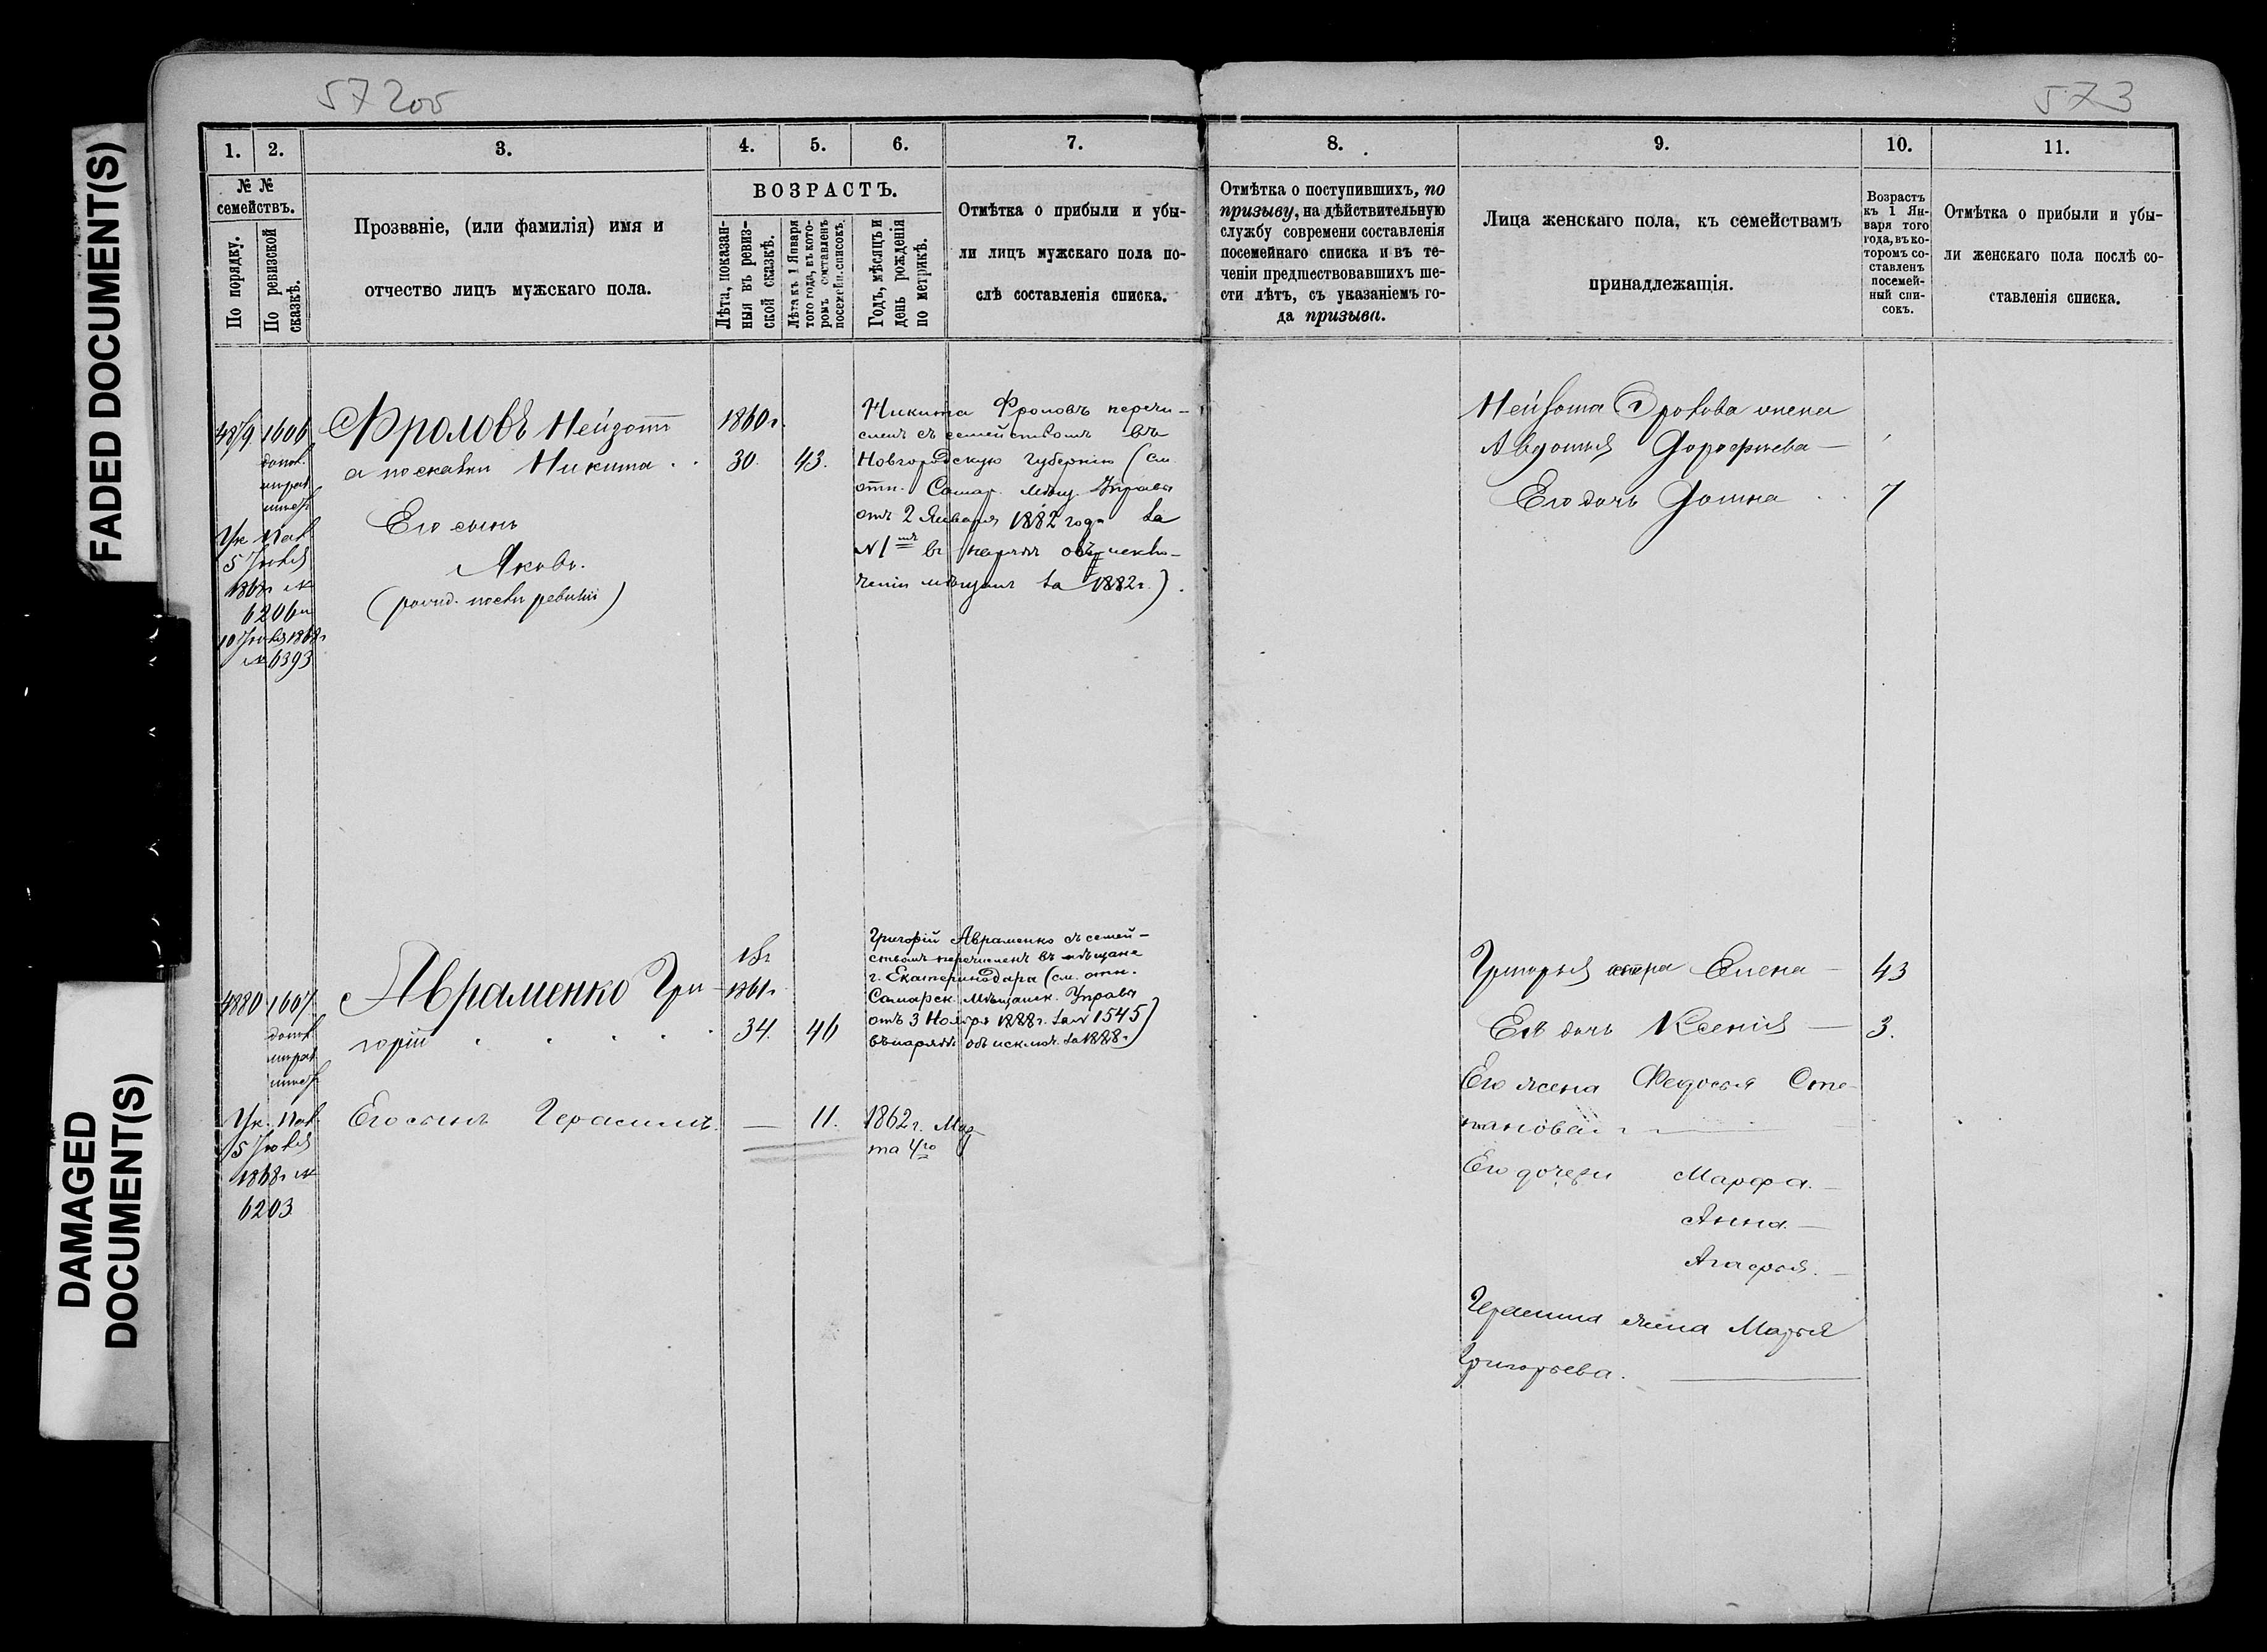 FADED DOCUMENT(S)
DAMAGED
DOCUMENT(S)
572об
573
1.
2.
3.
4.
5.
6.
7.
8.
9.
10.
11.
№ №
семействъ.
По порядку.
По ревизской
сказкѣ.
Прозваніе, (или фамилія) имя и
отчество лицъ мужскаго пола.
ВОЗРАСТЪ.
Лѣта, показан-
ныя въ ревиз-
ской сказкѣ.
Лѣта къ 1 Января
того года, въ кото-
ромъ составленъ
посемейн. списокъ.
Годъ, мѣсяцъ и
день рожденія
по метрикѣ.
Отмѣтка о прибыли и убы-
ли лицъ мужскаго пола по-
слѣ составленія списка.
Отмѣтка о поступившихъ, по
призыву, на дѣйствительную
службу современи составленія
посемейнаго списка и въ те-
ченіи предшествовавшихъ ше-
сти лѣтъ, съ указаніемъ го-
да призыва.
Лица женскаго пола, къ семействамъ
принадлежащія.
Возрастъ
къ 1 Ян-
варя того
года, въ ко-
торомъ со-
ставленъ
посемей-
ный спи-
сокъ.
Отмѣтка о прибыли и убы-
ли женскаго пола послѣ со-
ставленія списка.
4879
1606
Ук. Пал.
5 Іюля
1868г. №
6206 и
10 Іюля 1868г.
№ 6393
Фроловъ
а по сказки Никита
Его сынъ
Яковъ.
(рожд. послѣ ревизіи)
1860г.
30.
43.
Никита Фроловъ перечи-
сленъ съ семействомъ въ
Новгородскую Губернію (см.
отн. Самар. Мѣщ. Управы
отъ 2 Января 1882 года за
№ 1мъ въ нарядѣ объ исклю-
ченіи мѣщанъ за 1882г.).
Фролова жена
Авдотья Дорофѣева —
Его дочь Домна
7
4880
1607
Ук. Пал.
5 Іюля
1868г. №
6203
Авраменко Гри-
горій
18г.
1861г.
34.
46
Григорій Авраменко съ семей-
ствомъ перечисленъ въ мѣщане
г. Екатеринодара (см. отн.
Самарск. Мѣщанск. Управы
отъ 3 Ноября 1888г. за № 1545)
въ нарядѣ объ исключ. за 1888г.)
Его сынъ Герасимъ. — 11.
1862г. Мар-
та 4го
Григорья сестра Елена — 43
Ея дочь Ксенія — 3.
Его жена Федосья Сте-
панова
Его дочери Марфа. —
Анна. —
Агафья. —
Герасима жена Марья
Григорьева.